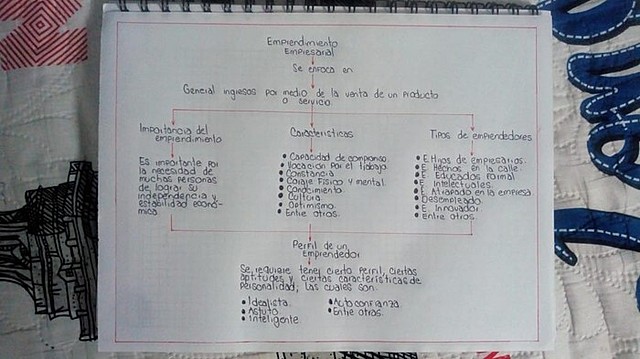 Emprendimiento
Empresarial
Se enfoca en
General ingresos por medio de la venta de un producto
o servicio.
Importancia del
emprendimiento
Es importante por
la necesidad de
muchas personas
de lograr su
independencia y
estabilidad econó-
mica
Características
• Capacidad de compromiso
• Vocación por el trabajo
• Constancia
• Coraje físico y mental
• Conocimiento
• Cultura
• Optimismo
• Entre otros.
Tipos de emprendedores
• E. Hijos de empresarios.
• E. Hechos en la calle.
• E. Educados formal
• E. Intelectuales.
• E. Atrapado en la empresa
• Desempleado
• E. Innovador
• Entre otros.
Perfil de un
emprendedor
Se requiere tener cierto perfil, ciertas
aptitudes y ciertas características de
personalidad, las cuales son:
• Idealista.
• Astuto
• Inteligente
• Autoconfianza.
• Entre otras.